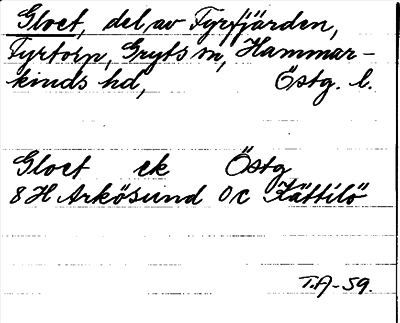 Gloet, del av Fyrfjärden,
Fyrtorp, Gryts sn, Hammar-
kinds hd, Östg. l.
Gloet ek Östg
8H Arkösund 0c Kättilö
T.A-59.